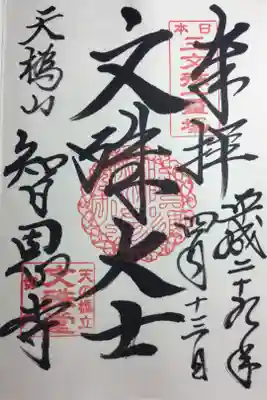 奉拝
平成二十九年
四月十三日
日本
三文殊霊場
文殊大士
天橋山
智恩寺
天の橋立
文殊堂